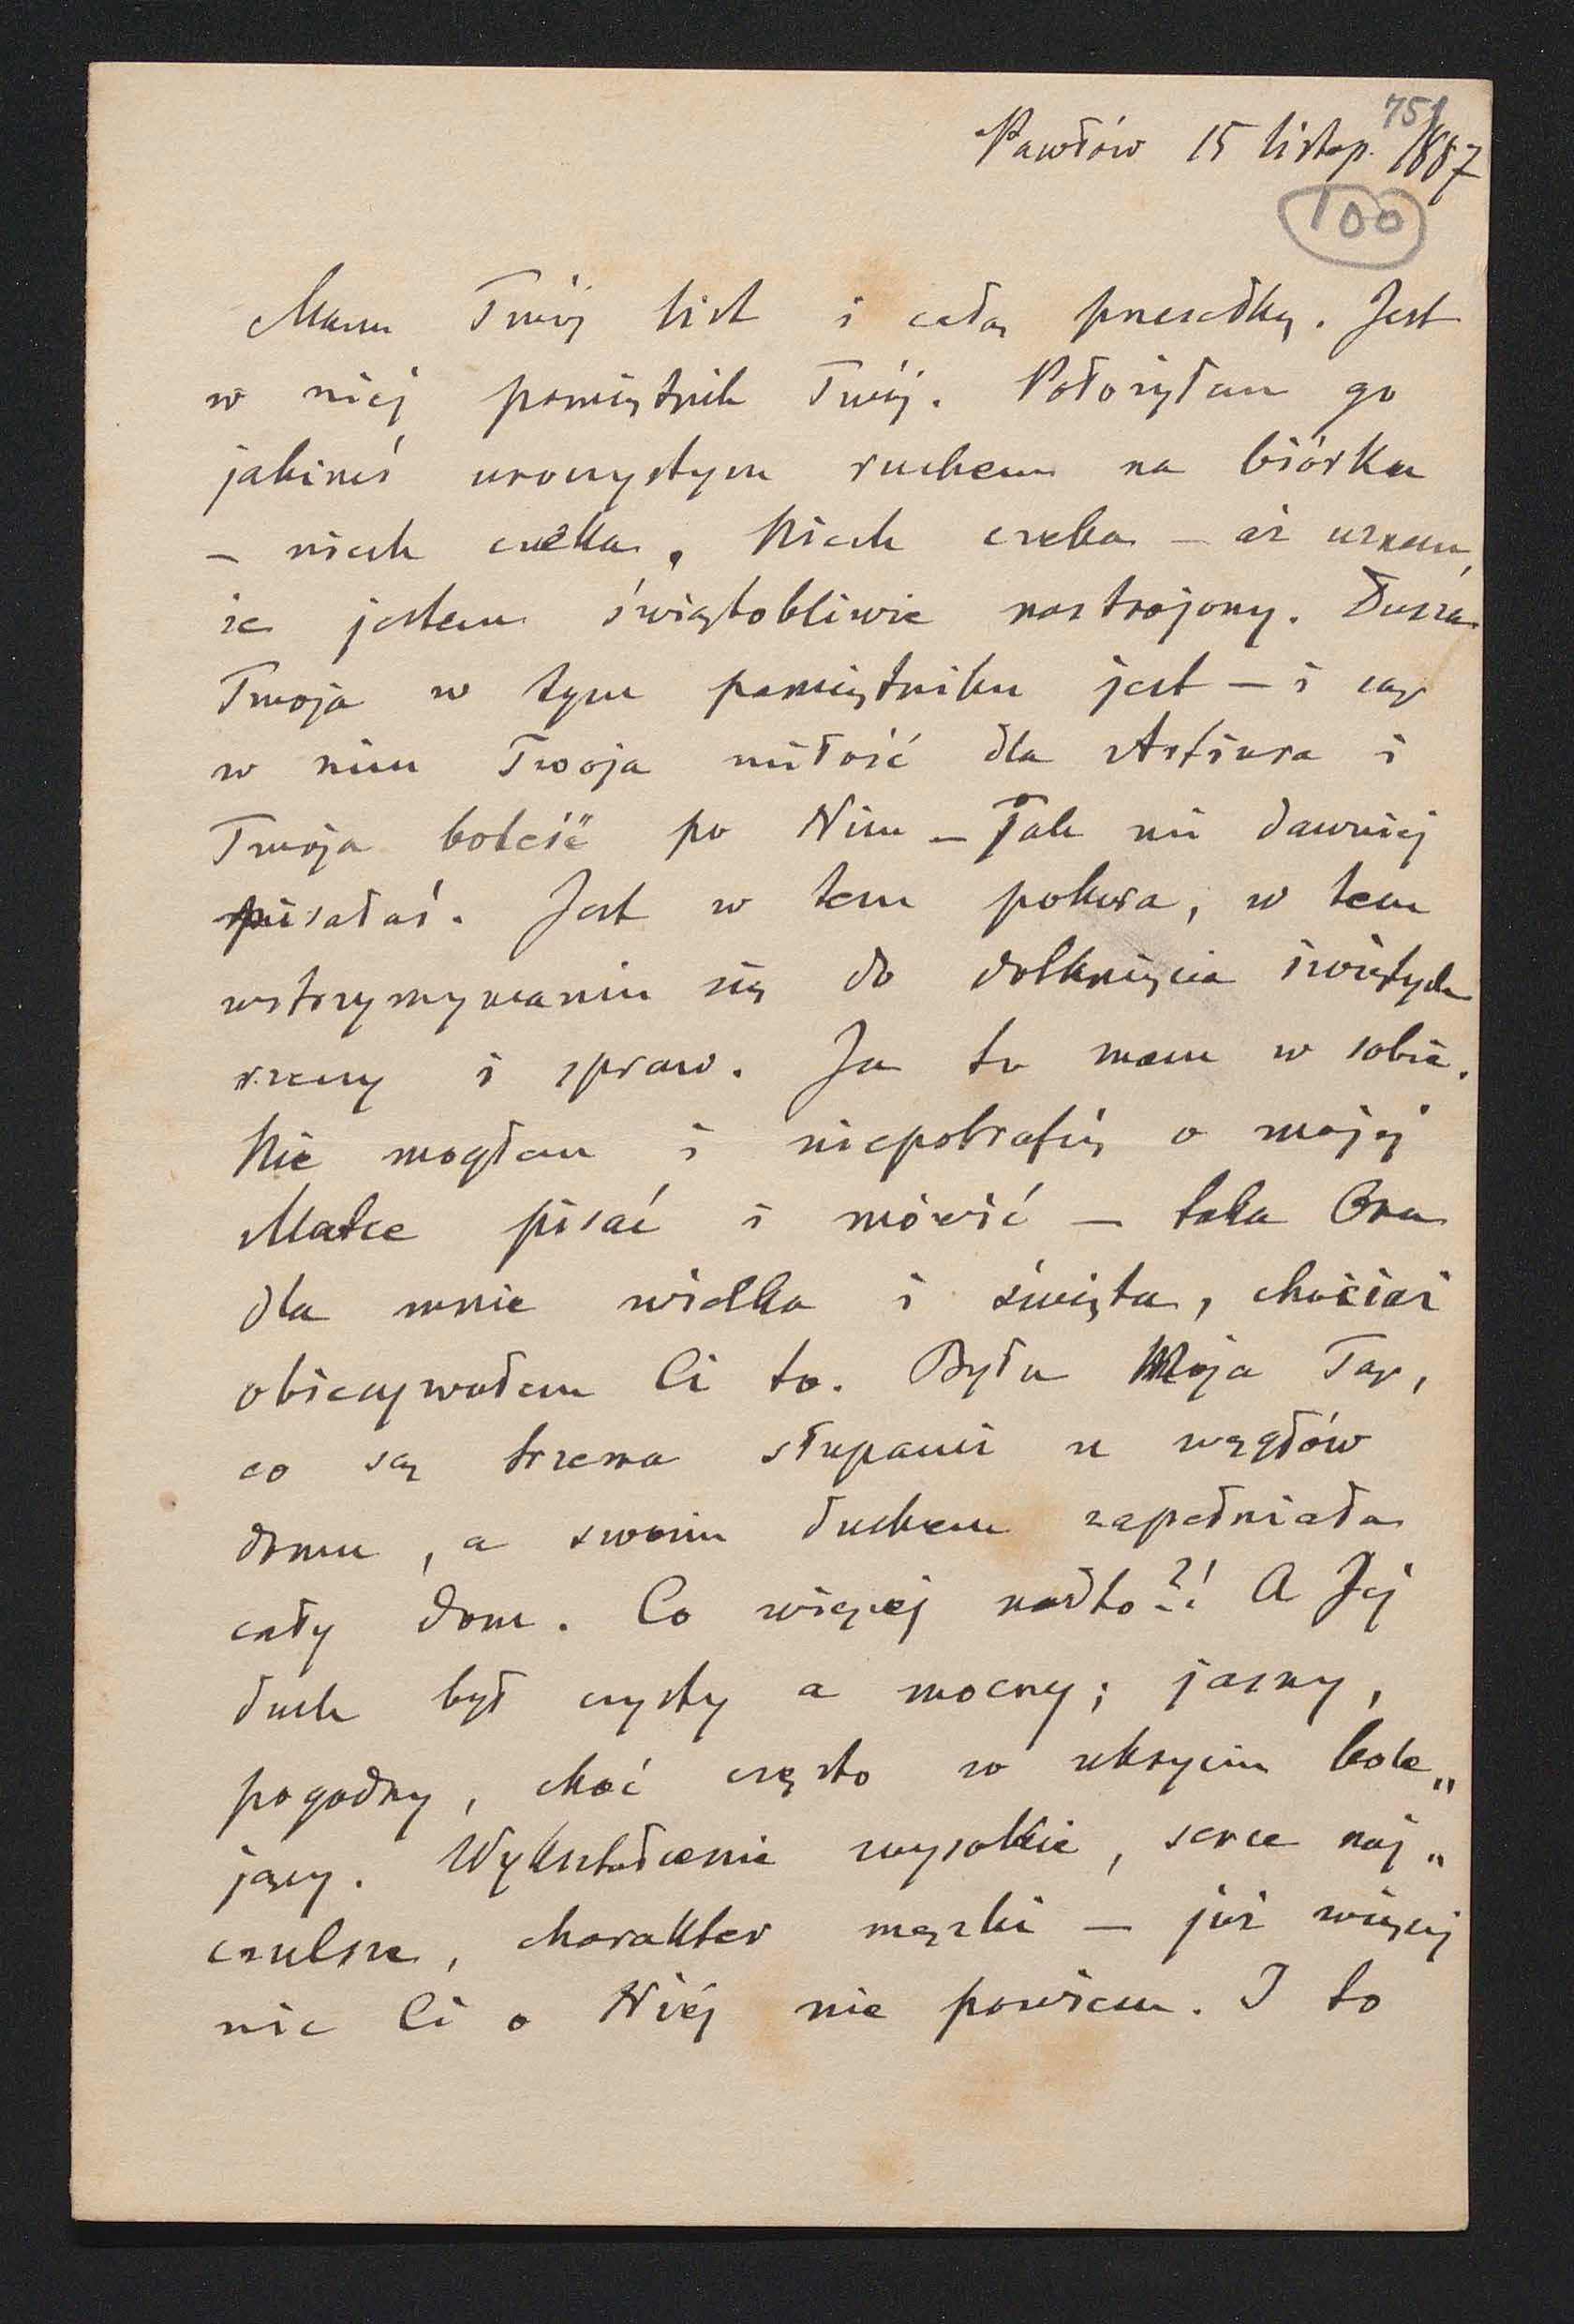 751
Pawłów 15 listop. 1887
100
Mam Twój list i całą przesełkę. Jest
w niej pamiętnik Twój. Położyłam go
jakimś uroczystym ruchem na biórku
– niech czeka. Niech czeka – aż uznam,
że jestem świątobliwie nastrojony. Dusza
Twoja w tym pamiętniku jest – i są
w nim Twoja miłość dla Artura i
Twoja boleść po Nim – Tak mi dawniej
pisałaś. Jest w tem pokusa, w tem
wstrzymywaniu się do dotknięcia świętych
rzeczy i spraw. Ja to mam w sobie.
Nie mogłam i niepotrafię o mojej
Matce pisać i mówić – taka Ona
dla mnie wielka i święta, chociaż
obiecywałem Ci to. Była Moja Tą,
co są trzema słupami u węgłów
domu, a swoim duchem zapełniała
cały dom. Co więcej nadto?! A Jej
duch był czysty a mocny; jasny,
pogodny, choć często w ukryciu bole„
jący. Wykształcenie wysokie, serce naj„
czulsze, charakter męzki – już więcej
nic Ci o Niéj nie powiem. I to